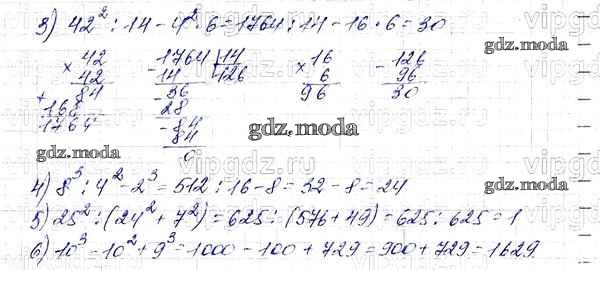 3) 42² : 14 - 4² · 6 = 1764 : 14 - 16 · 6 = 30
× 42
42
84
+ 168
1764
- 1764 | 14
14 | 126
- 36
28
- 84
84
0
× 16
6
96
- 126
96
30
gdz.moda
gdz.moda
gdz.moda
4) 8³ : 4² - 2³ = 512 : 16 - 8 = 32 - 8 = 24
gdz.moda
5) 25² : (24² + 7²) = 625 : (576 + 49) = 625 : 625 = 1
6) 10³ - 10² + 9³ = 1000 - 100 + 729 = 900 + 729 = 1629.
vipgdz.ru